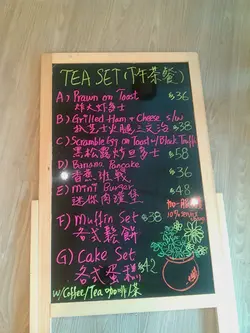 TEA SET (下午茶餐)
A) Prawn on Toast $36
炸大蝦多士
B) Grilled Ham + Cheese s/w $38
扒芝士火腿三文治
C) Scramble Egg on Toast w/ Black Truffle
黑松露炒旦多士 $58
D) Banana Pancake $36
香蕉班戟
E) Mini Burger $48
迷你肉漢堡
10% service
F) Muffin Set $38
各式鬆餅
G) Cake Set
各式蛋糕 $42
w/ Coffee/Tea 咖啡/茶